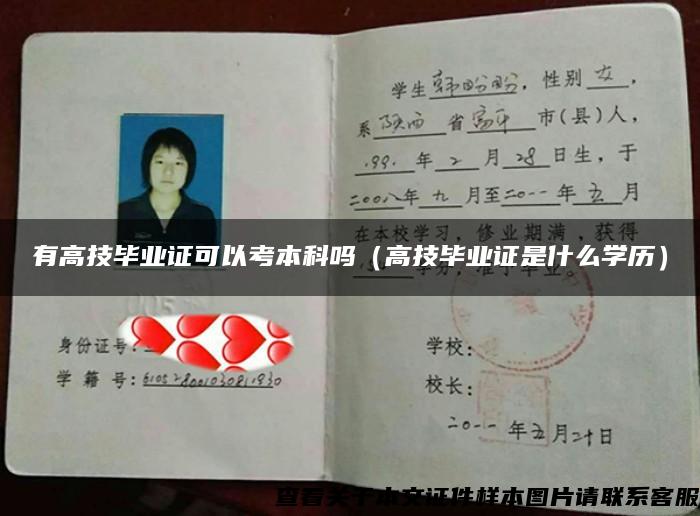 学生韩盼盼，性别女，
系陕西省富平市(县)人，
199.年2月28日生，于
二00八年九月至二0一一年五月
在本校学习，修业期满，获得
有高技毕业证可以考本科吗（高技毕业证是什么学历）
学分，准予毕业。
身份证号：
学籍号：610528001030811930
学校：
校长：
二0一一年五月二十日
查看关于本文证件样本图片请联系客服